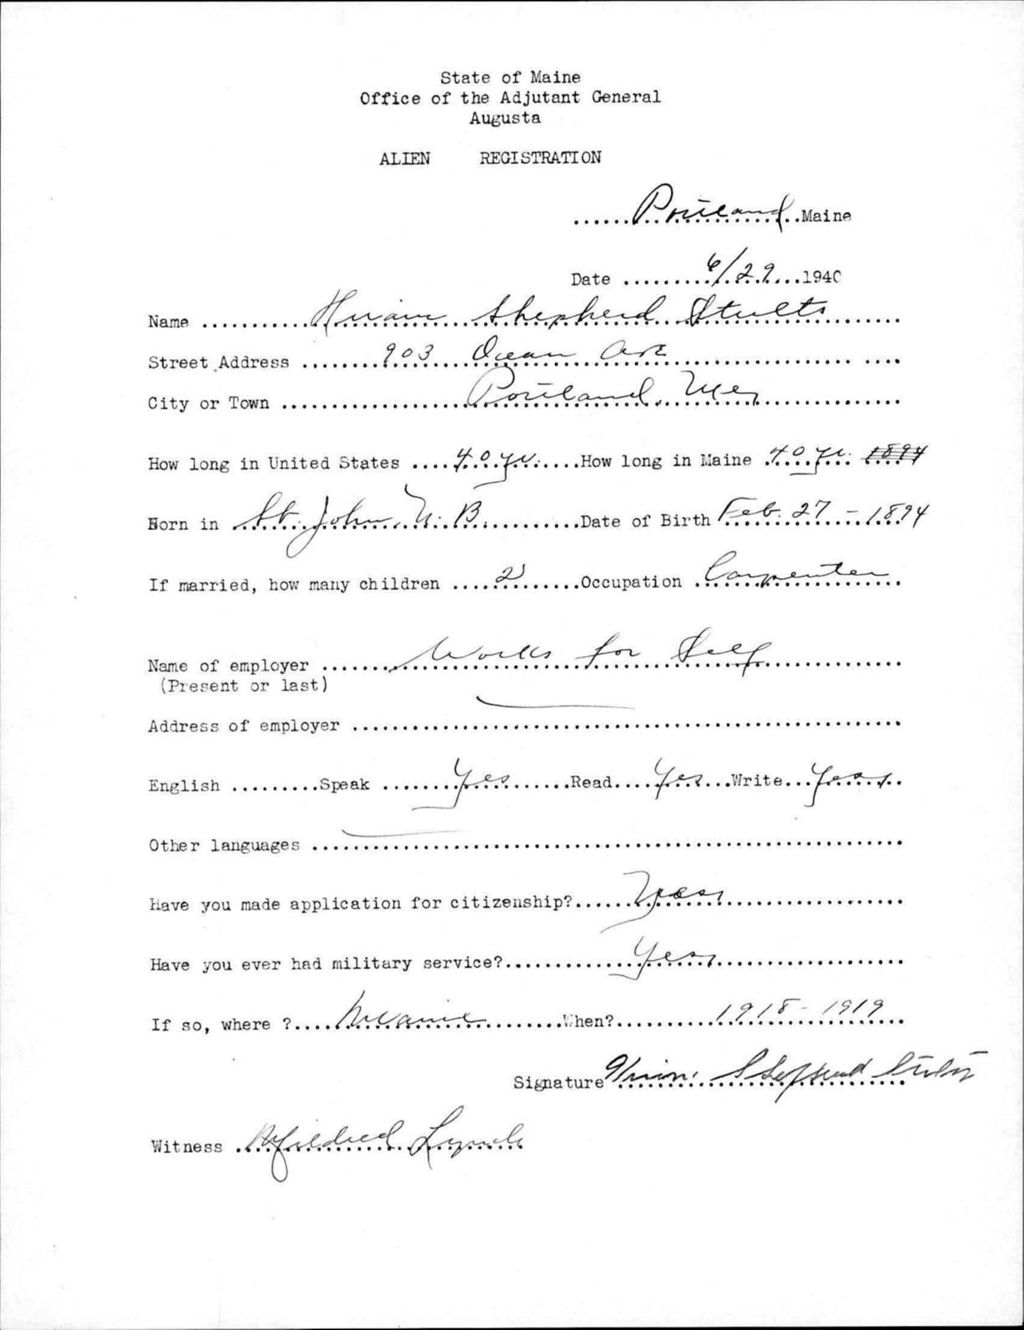 State of Maine
Office of the Adjutant General
Augusta
ALIEN REGISTRATION
......Portland..Maine
Date .........6/29...1940
Name ...........Hiram Shepherd Stults........
Street Address ........903 Ocean Ave.................... ....
City or Town ..................Portland, Me,.............
How long in United States ....40 yr.....How long in Maine .40 yr. 1894
Born in ..St. John, N. B...........Date of Birth Feb. 27 - 1894
If married, how many children ....2.......Occupation .Carpenter.
Name of employer .......Works for Self.............
(Present or last)
Address of employer ..................................................
English .........Speak .......Yes........Read....Yes...Write...Yes..
Other languages ......................................................
Have you made application for citizenship?......Yes................
Have you ever had military service?............Yes.................
If so, where ?.... ..........When?..........1918 - 1919
Signature Hiram Shepherd Stults
Witness .Mildred Lynch